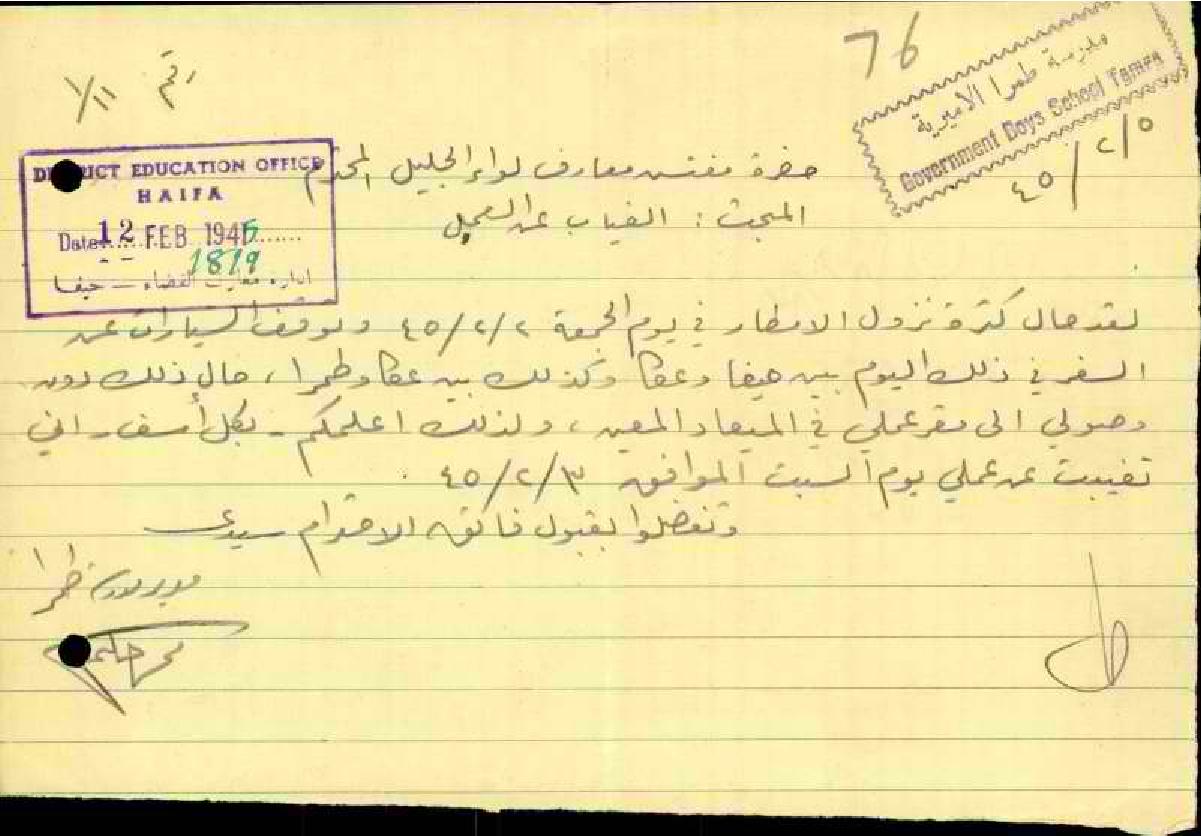 76
رقم ١/١١
مدرسة طمرا الاميرية
Government Boys School Tamra
٤٥/٢/٥
DISTRICT EDUCATION OFFICE
HAIFA
Date 12 FEB 1945
1819
ادارة معارف القضاء — حيفا
حضرة مفتش معارف لواء الجليل المحترم
المبحث : الغياب عن العمل
لقد حال كثرة نزول الامطار في يوم الجمعة ٤٥/٢/٢ وتوقف السيارات عن
السفر في ذلك اليوم بين حيفا وعكا وكذلك بين عكا وطمرا ، حال ذلك دون
وصولي الى مقر عملي في الميعاد المعين ، ولذلك اعلمكم - بكل أسف - اني
تغيبت عن عملي يوم السبت الموافق ٤٥/٢/٣ .
وتفضلوا بقبول فائق الاحترام سيدي
مدير مدرسة طمرا